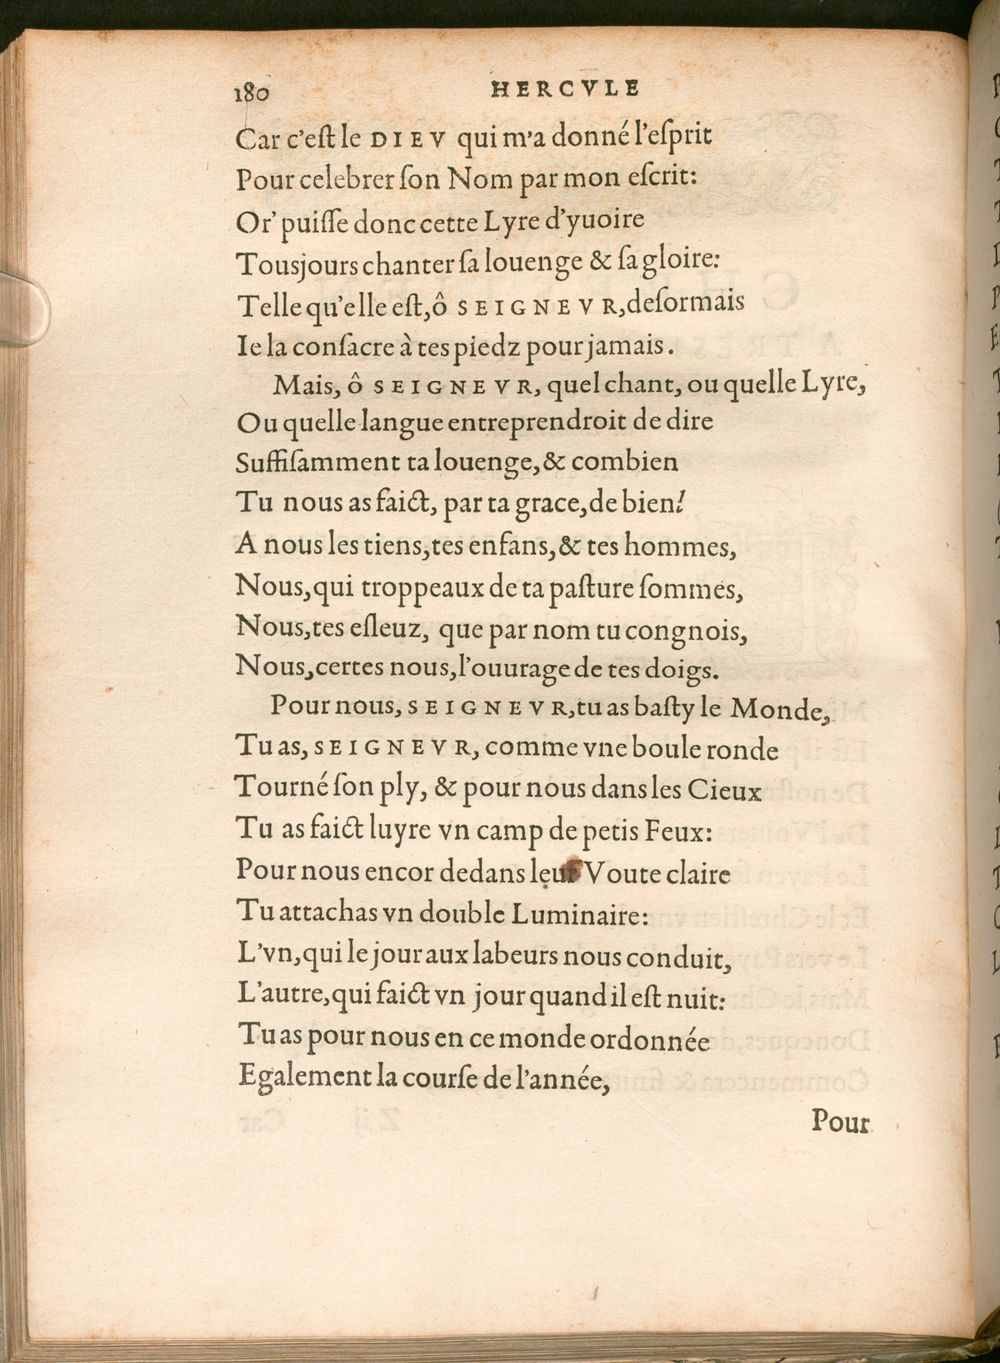 180 HERCVLE
Car c'eſt le DIEV qui m'a donné l'eſprit
Pour celebrer ſon Nom par mon eſcrit:
Or' puiſſe donc cette Lyre d'yuoire
Tousjours chanter ſa louenge & ſa gloire:
Telle qu'elle eſt, ô SEIGNEVR, deſormais
Ie la conſacre à tes piedz pour jamais.
Mais, ô SEIGNEVR, quel chant, ou quelle Lyre,
Ou quelle langue entreprendroit de dire
Suffiſamment ta louenge, & combien
Tu nous as faict, par ta grace, de bien!
A nous les tiens, tes enfans, & tes hommes,
Nous, qui troppeaux de ta paſture ſommes,
Nous, tes eſleuz, que par nom tu congnois,
Nous, certes nous, l'ouurage de tes doigs.
Pour nous, SEIGNEVR, tu as baſty le Monde,
Tu as, SEIGNEVR, comme vne boule ronde
Tourné ſon ply, & pour nous dans les Cieux
Tu as faict luyre vn camp de petis Feux:
Pour nous encor dedans leur Voute claire
Tu attachas vn double Luminaire:
L'vn, qui le jour aux labeurs nous conduit,
L'autre, qui faict vn jour quand il eſt nuit:
Tu as pour nous en ce monde ordonnée
Egalement la courſe de l'année,
Pour